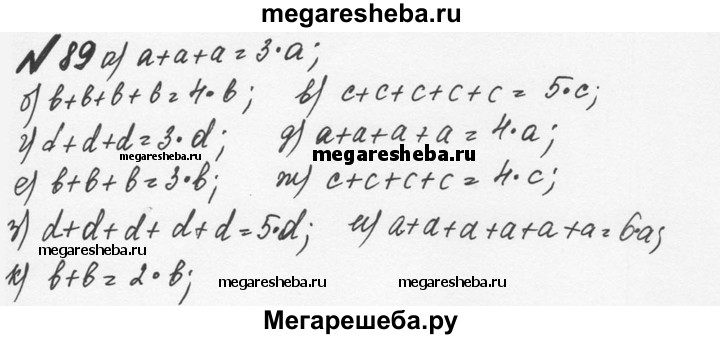 megaresheba.ru
№ 89 а) a+a+a=3·a;
б) b+b+b+b=4·b; в) c+c+c+c+c=5·c;
г) d+d+d=3·d; д) a+a+a+a=4·a;
megaresheba.ru megaresheba.ru
е) b+b+b=3·b; ж) c+c+c+c=4·c;
з) d+d+d+d+d=5·d; и) a+a+a+a+a+a=6·a;
megaresheba.ru
к) b+b=2·b; megaresheba.ru megaresheba.ru
Мегарешеба.ру